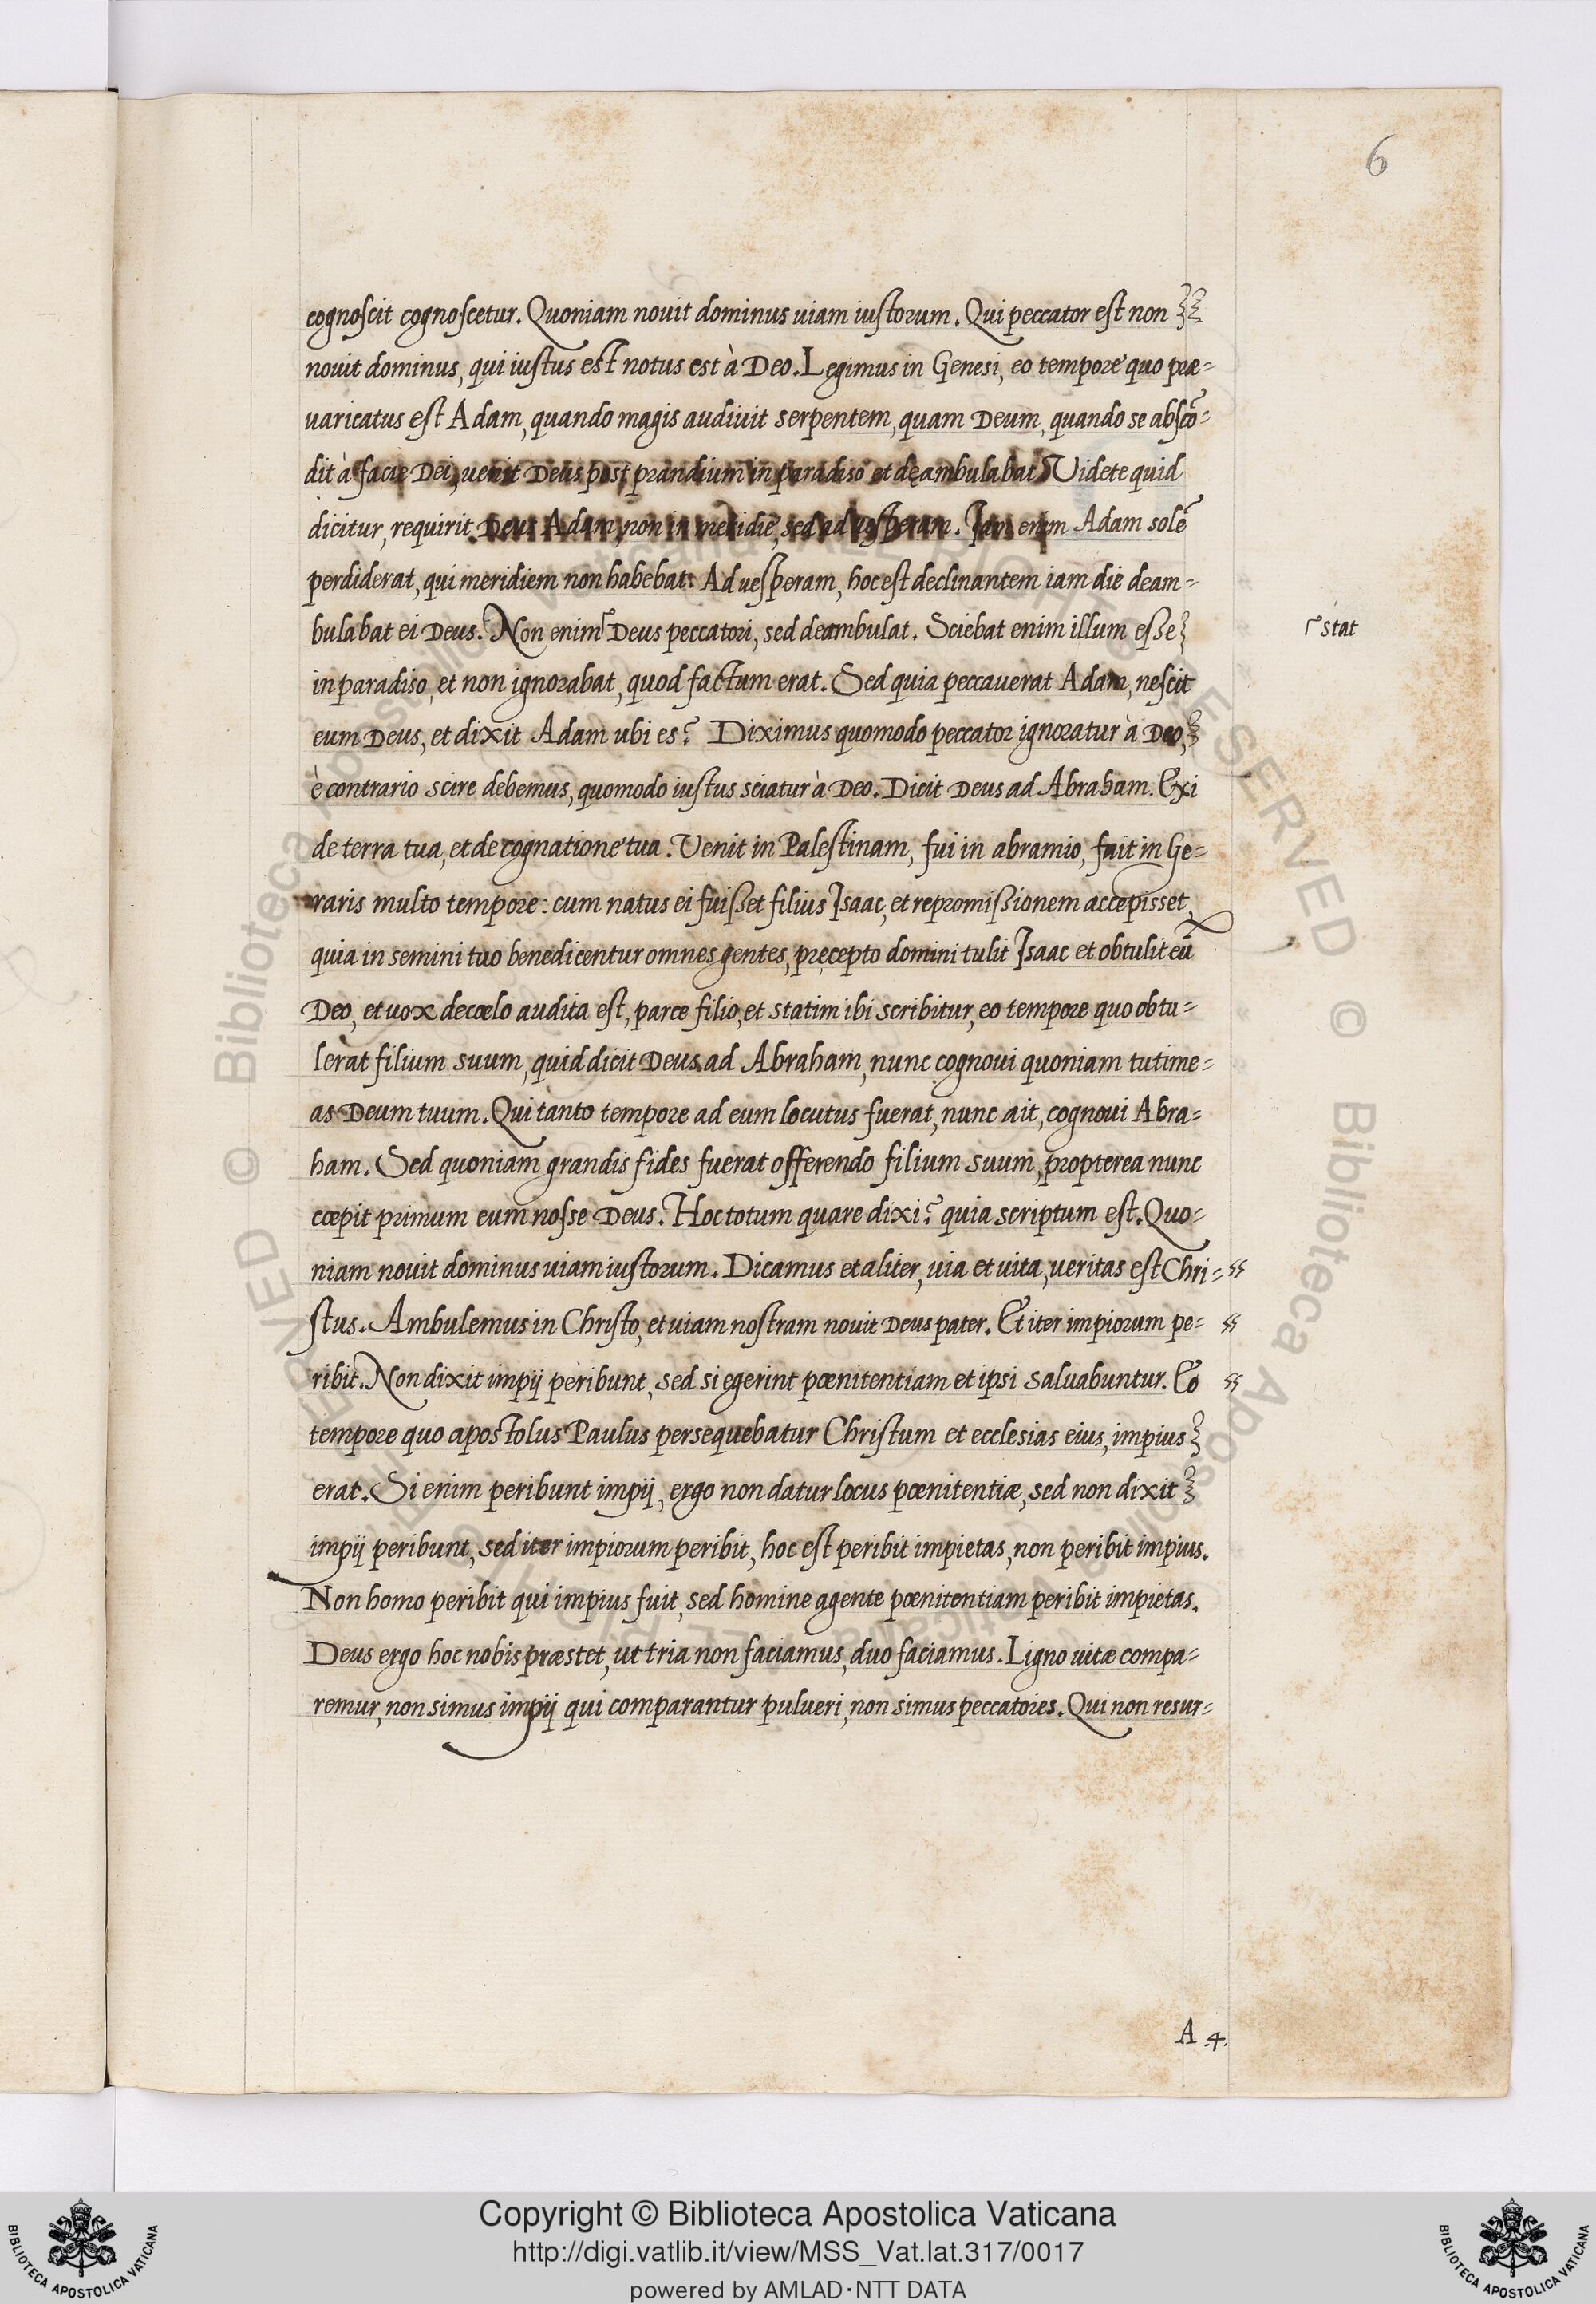 6
cognoscit cognoscetur. Quoniam nouit dominus uiam iustorum. Qui peccator est non
nouit dominus, qui iustus est notus est à Deo. Legimus in Genesi, eo tempore quo præ=
uaricatus est Adam, quando magis audiuit serpentem, quam Deum, quando se abscō=
dit à facie Dei, uenit Deus post prandium in paradiso et deambulabat. Videte quid
dicitur, requirit Deus Adam, non in meridie, sed ad uesperam. Iam enim Adam solē
perdiderat, qui meridiem non habebat: Ad uesperam, hoc est declinantem iam die deam=
bulabat ei Deus. Non enim⸢ Deus peccatori, sed deambulat. Sciebat enim illum esse
⸢stat
in paradiso, et non ignorabat, quod factum erat. Sed quia peccauerat Adam, nescit
eum Deus, et dixit Adam ubi es? Diximus quomodo peccator ignoratur à Deo,
è contrario scire debemus, quomodo iustus sciatur à Deo. Dicit Deus ad Abraham. Exi
de terra tua, et de cognatione tua. Venit in Palestinam, fui in abramio, fuit in Ge=
raris multo tempore: cum natus ei fuisset filius Isaac, et repromissionem accepisset,
quia in semini tuo benedicentur omnes gentes, pręcepto domini tulit Isaac et obtulit eū
Deo, et uox de cœlo audita est, parce filio, et statim ibi scribitur, eo tempore quo obtu=
lerat filium suum, quid dicit Deus ad Abraham, nunc cognoui quoniam tu time=
as Deum tuum. Qui tanto tempore ad eum locutus fuerat, nunc ait, cognoui Abra=
ham. Sed quoniam grandis fides fuerat offerendo filium suum, propterea nunc
cœpit primum eum nosse Deus. Hoc totum quare dixi? quia scriptum est. Quo=
niam nouit dominus uiam iustorum. Dicamus et aliter, uia et uita, ueritas est Chri=
stus. Ambulemus in Christo, et uiam nostram nouit Deus pater. Et iter impiorum pe=
ribit. Non dixit impij peribunt, sed si egerint pœnitentiam et ipsi saluabuntur. Eo
tempore quo apostolus Paulus persequebatur Christum et ecclesias eius, impius
erat. Si enim peribunt impij, ergo non datur locus pœnitentiæ, sed non dixit
impij peribunt, sed iter impiorum peribit, hoc est peribit impietas, non peribit impius.
Non homo peribit qui impius fuit, sed homine agente pœnitentiam peribit impietas.
Deus ergo hoc nobis præstet, ut tria non faciamus, duo faciamus. Ligno uitæ compa=
remur, non simus impij qui comparantur pulueri, non simus peccatores. Qui non resur=
A 4.
Copyright © Biblioteca Apostolica Vaticana
http://digi.vatlib.it/view/MSS_Vat.lat.317/0017
powered by AMLAD·NTT DATA